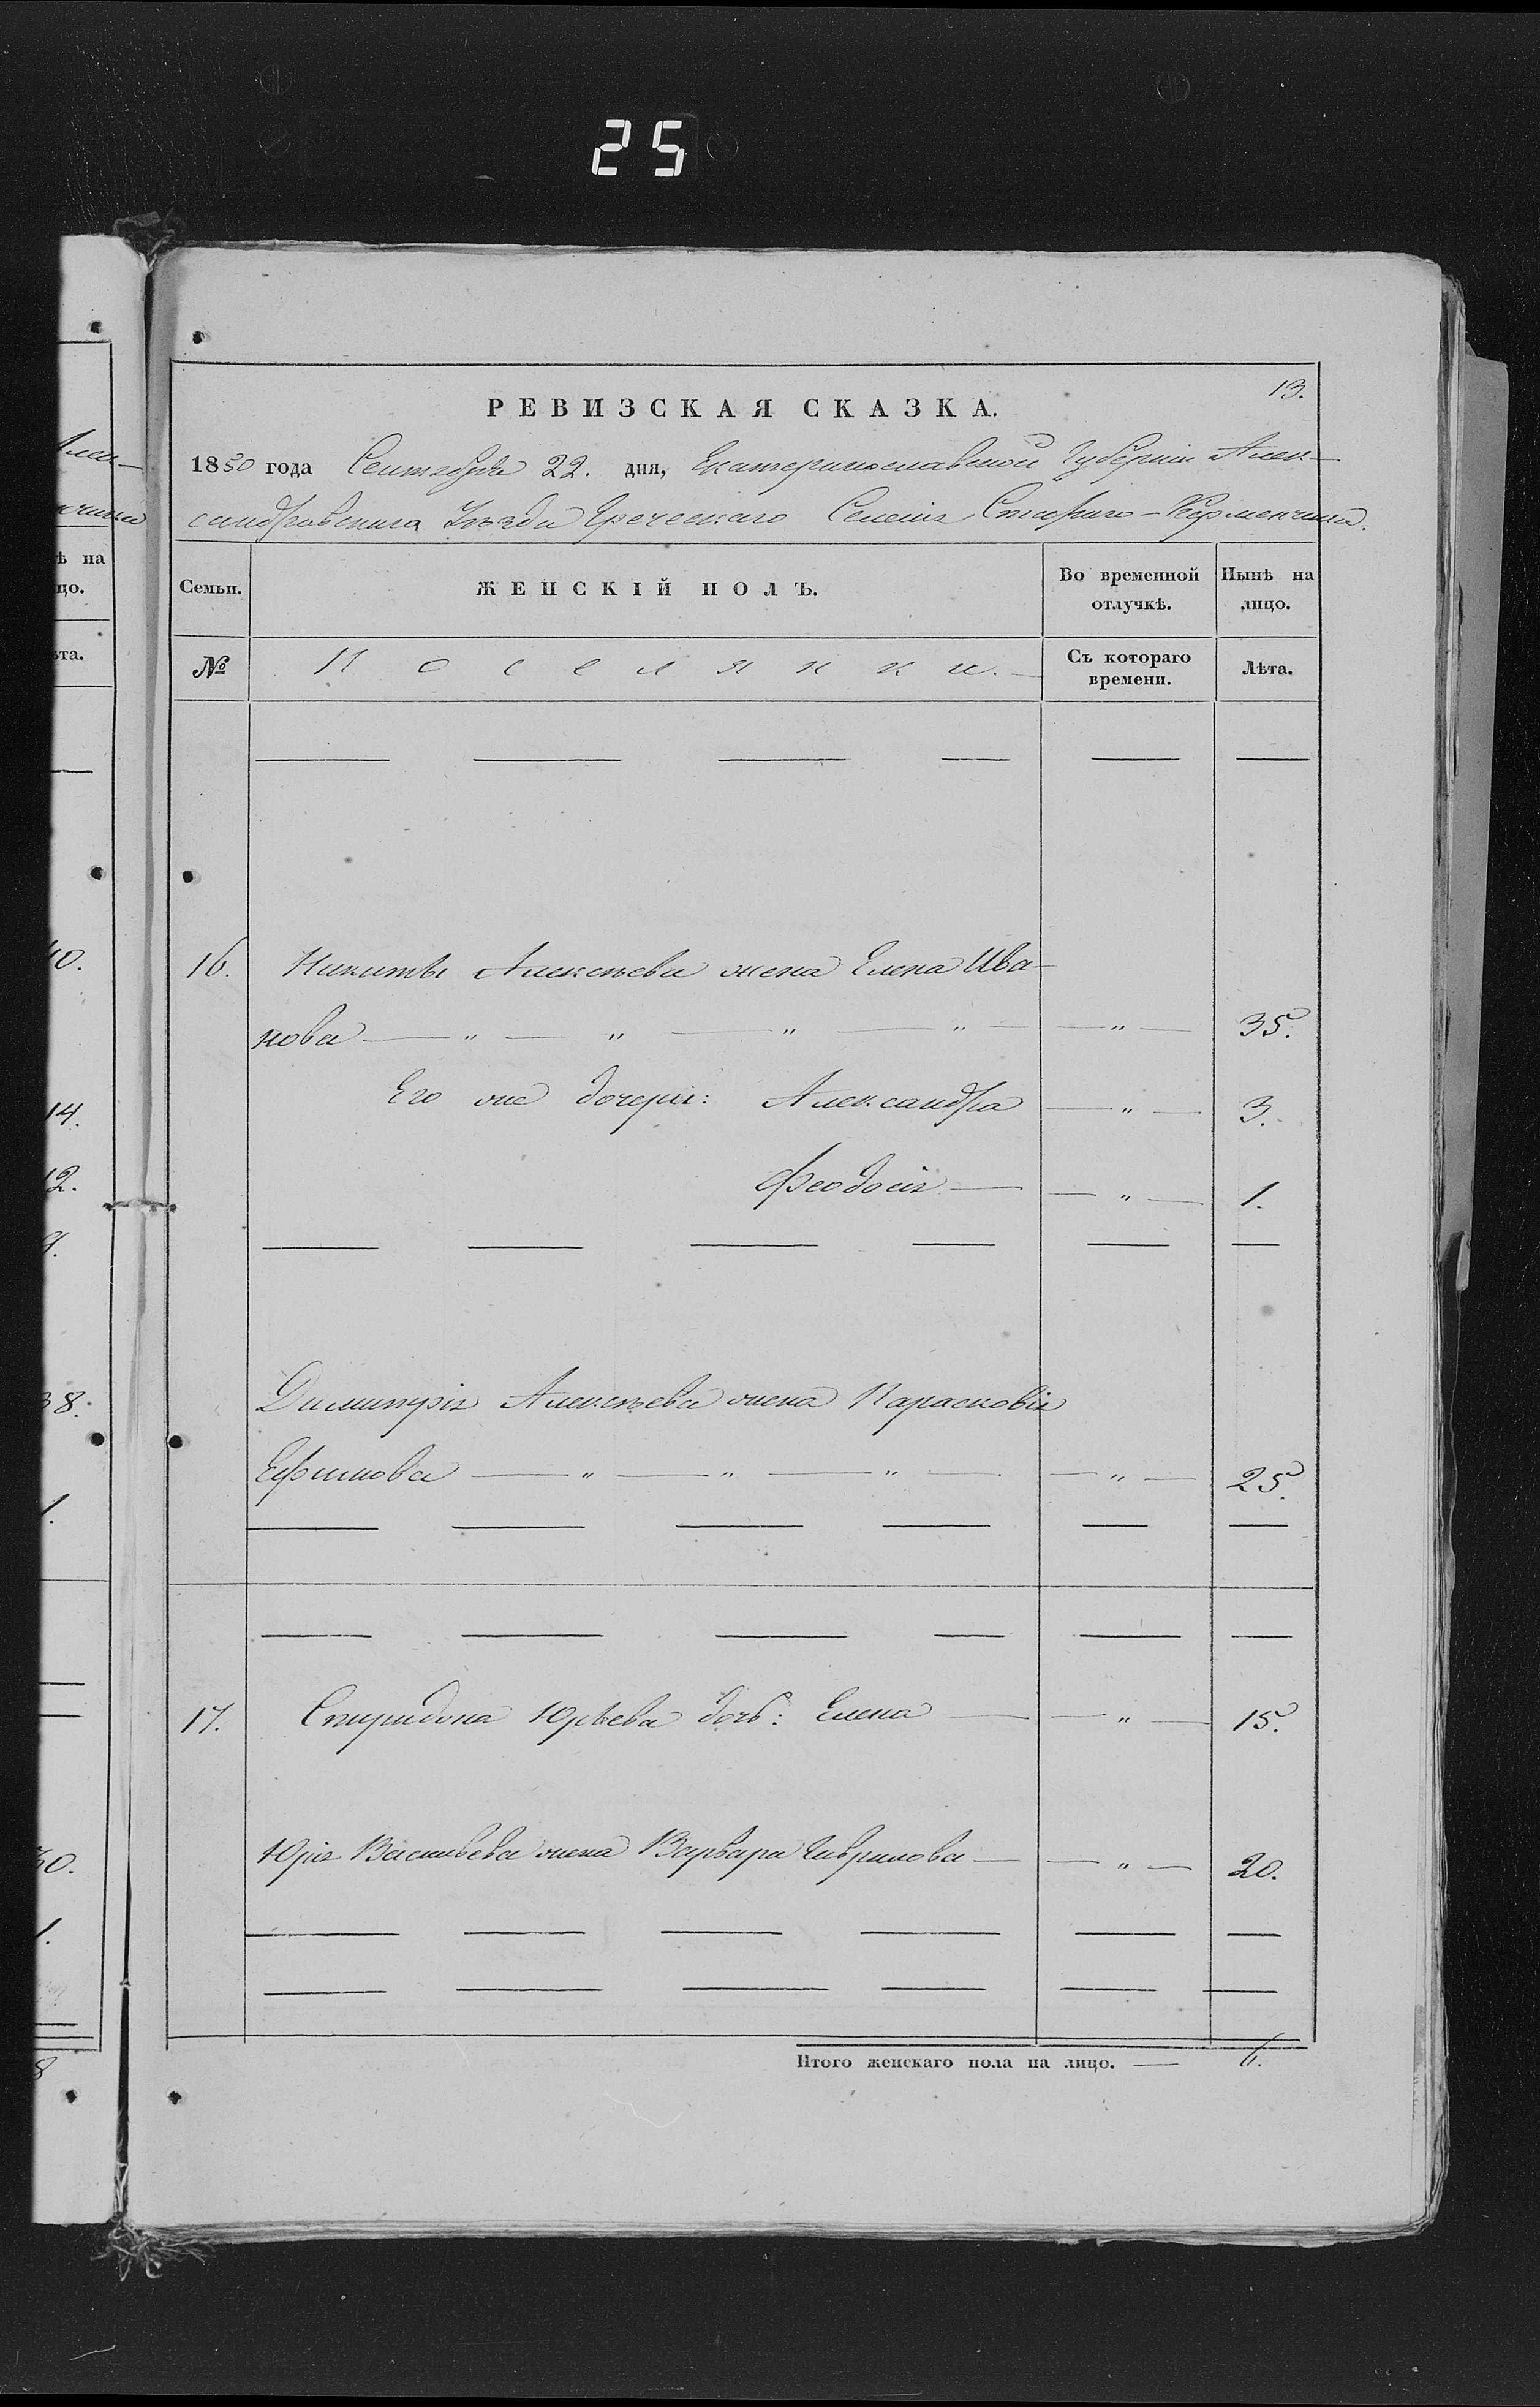 25
13.
РЕВИЗСКАЯ СКАЗКА.
1850 года Сентября 22. дня, Екатеринославской Губерніи Алек-
сандровскаго Уѣзда Греческаго Селенія Стараго-Керменчика.
Семьи. ЖЕНСКІЙ ПОЛЪ. Во временной отлучкѣ. Нынѣ на лицо.
№ Поселянки. Съ котораго времени. Лѣта.
16. Никиты Алексѣева жена Елена Ива-
нова — " — " — " — " — — " — 35.
Его же дочери: Александра — " — 3.
Феодосія — — " — 1.
Димитрія Алексѣева жена Парасковія
Ефимова — " — " — " — — " — 25.
17. Спиридона Юрьева дочь: Елена — — " — 15.
Юрія Васильева жена Варвара Гаврилова — — " — 20.
Итого женскаго пола на лицо. — 6.
Алек-
нчика
ѣ на
цо.
ѣта.
40.
14.
12.
9.
38.
1.
30.
1.
8